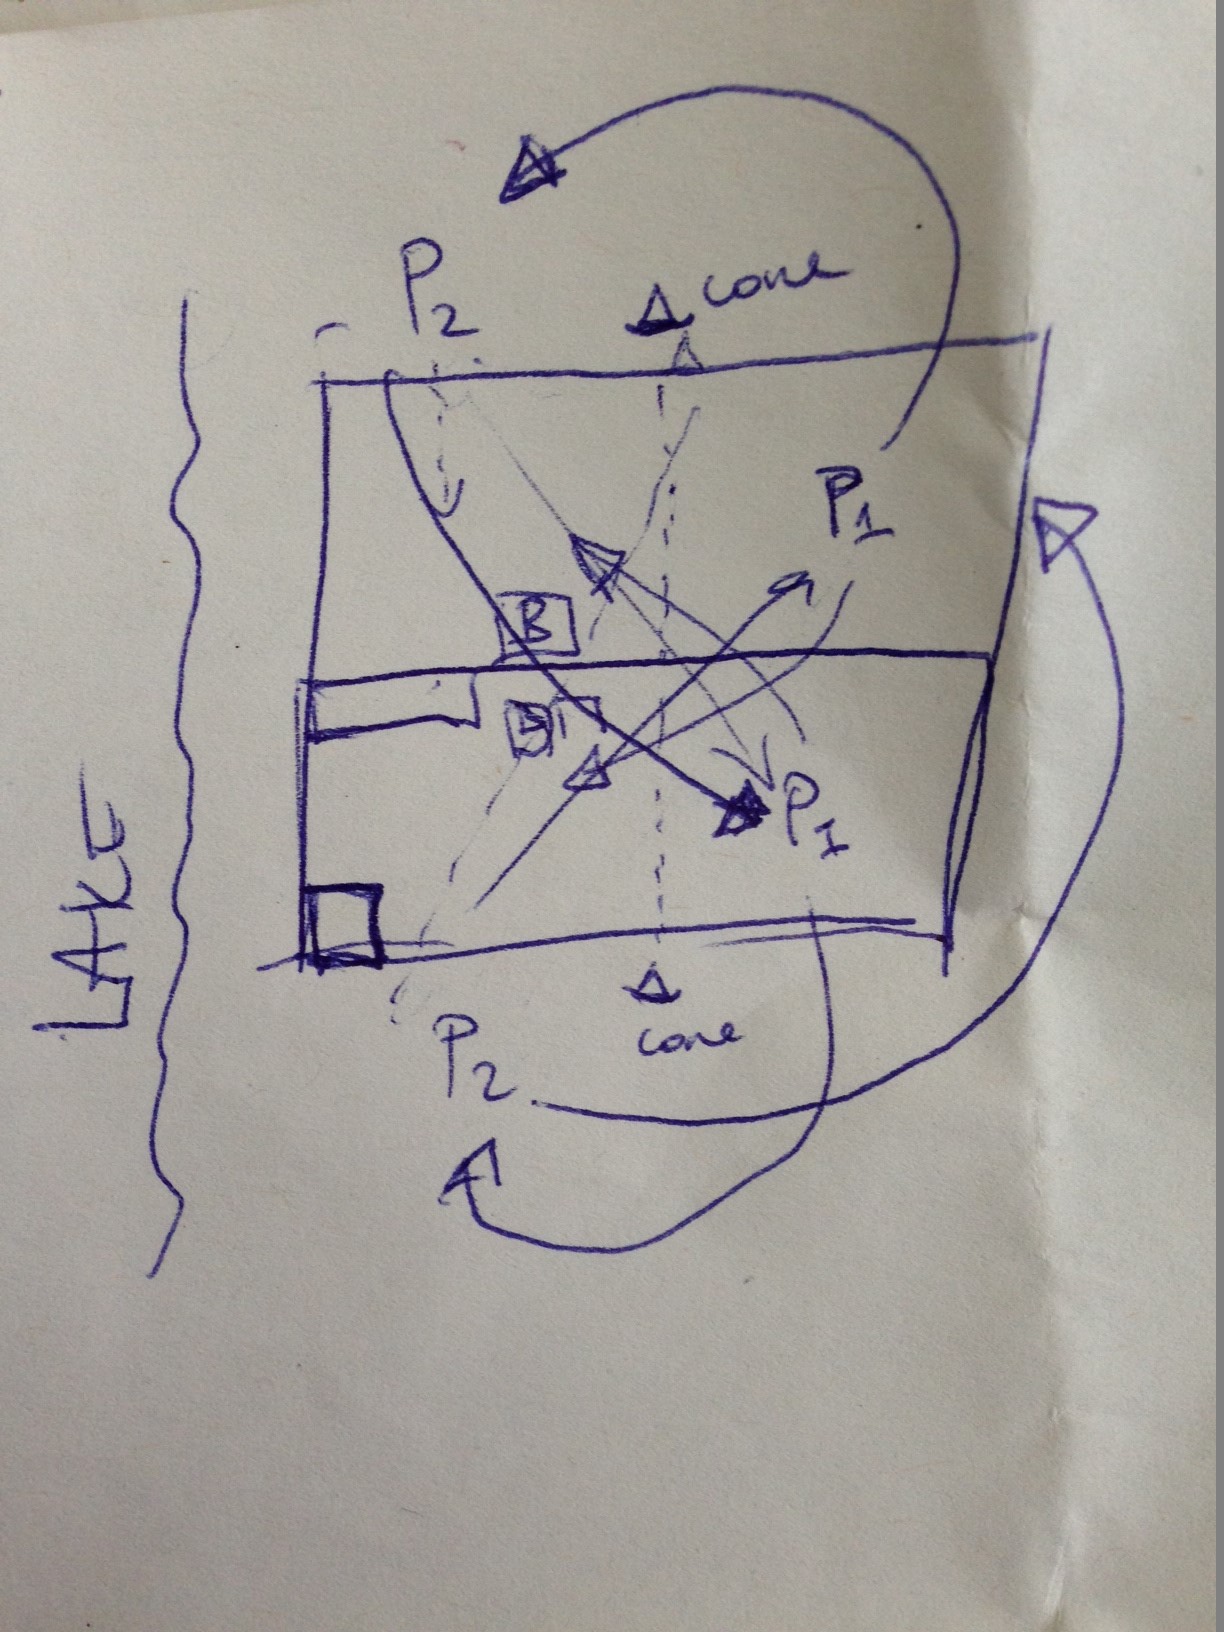 P2
cone
P1
B
P1
LAKE
cone
P2